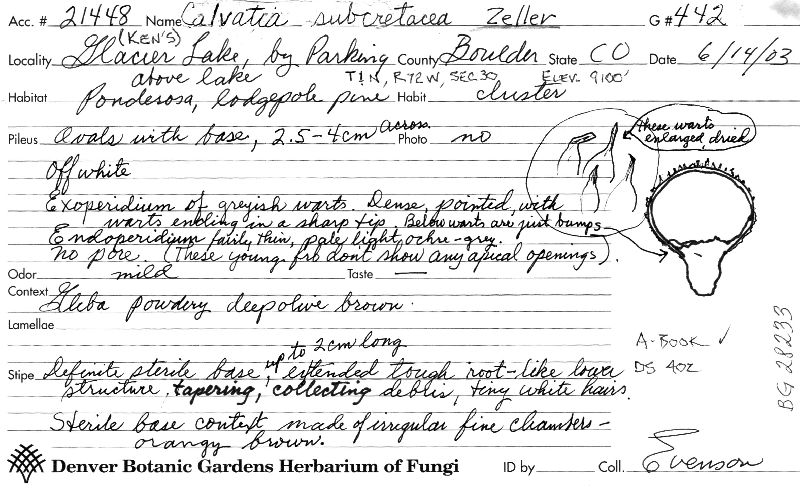 Acc. # 21448 Name Calvatia subcretacea Zeller G # 442
(KEN'S)
Locality Glacier Lake, by Parking County Boulder State CO Date 6/14/03
above lake T1N, R72W, SEC.30, ELEV. 9100'
Habitat Ponderosa, lodgepole pine Habit cluster
Pileus Ovals with base, 2.5-4cm across. Photo no
these warts
enlarged, dried
Off white
Exoperidium of greyish warts. Dense, pointed, with
warts ending in a sharp tip. Below warts are just bumps
Endoperidium fairly thin, pale light ochre-grey.
no pore. (These young frb dont show any apical openings).
Odor mild Taste —
Context Gleba powdery deep olive brown.
Lamellae
up to 2cm long
Stipe Definite sterile base, extended tough root-like lower
structure, tapering, collecting debris, tiny white hairs.
Sterile base context made of irregular fine chambers -
orangy brown.
A-BOOK ✓
DS 402
BG 28233
Denver Botanic Gardens Herbarium of Fungi ID by Coll. Evenson